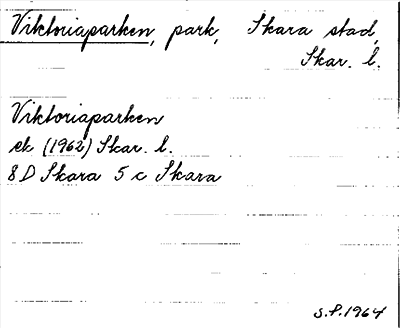 Viktoriaparken, park, Skara stad,
Skar. l.
Viktoriaparken
ek (1962) Skar. l.
8D Skara 5 c Skara
S.P. 1964